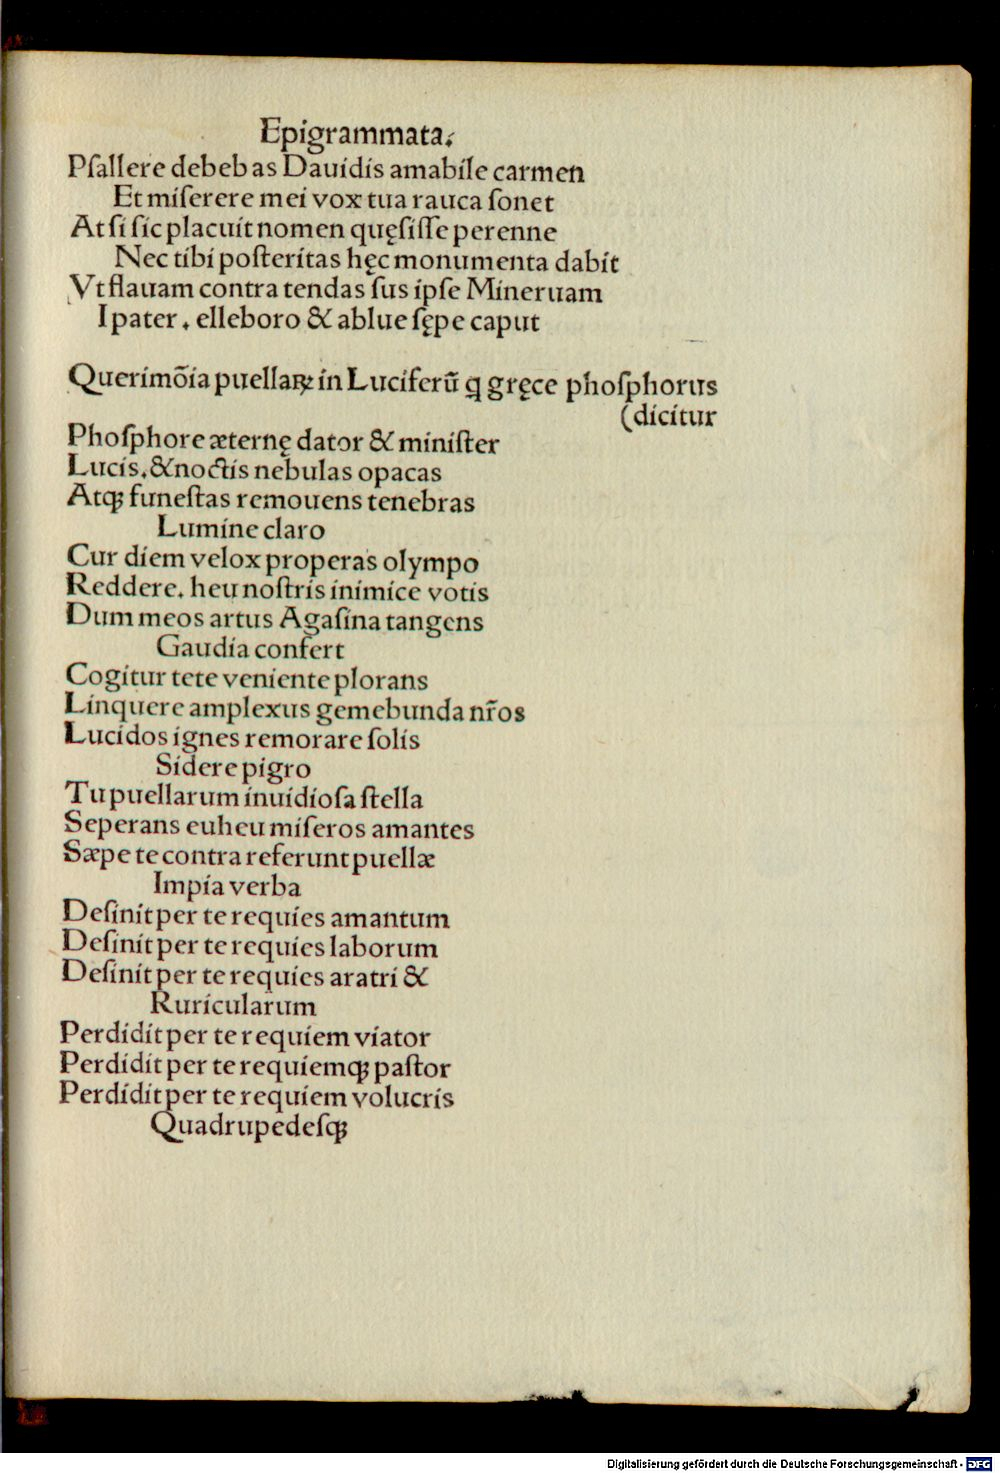 Epigrammata.
Pſallere debebas Dauidis amabile carmen
Et miſerere mei vox tua rauca ſonet
At ſi ſic placuit nomen quęſiſſe perenne
Nec tibi poſteritas hęc monumenta dabit
Vt flauam contra tendas ſus ipſe Mineruam
I pater. elleboro & ablue ſępe caput
Querimõia puellaꝝ in Luciferũ ꝗ gręce phoſphorus
(dicitur
Phoſphore æternę dator & miniſter
Lucis. & noctis nebulas opacas
Atqꝫ funeſtas remouens tenebras
Lumine claro
Cur diem velox properas olympo
Reddere. heu noſtris inimice votis
Dum meos artus Agaſina tangens
Gaudia confert
Cogitur te te veniente plorans
Linquere amplexus gemebunda nr̃os
Lucidos ignes remorare ſolis
Sidere pigro
Tu puellarum inuidioſa ſtella
Seperans euheu miſeros amantes
Sæpe te contra referunt puellæ
Impia verba
Deſinit per te requies amantum
Deſinit per te requies laborum
Deſinit per te requies aratri &
Ruricularum
Perdidit per te requiem viator
Perdidit per te requiemqꝫ paſtor
Perdidit per te requiem volucris
Quadrupedeſqꝫ
Digitalisierung gefördert durch die Deutsche Forschungsgemeinschaft - DFG